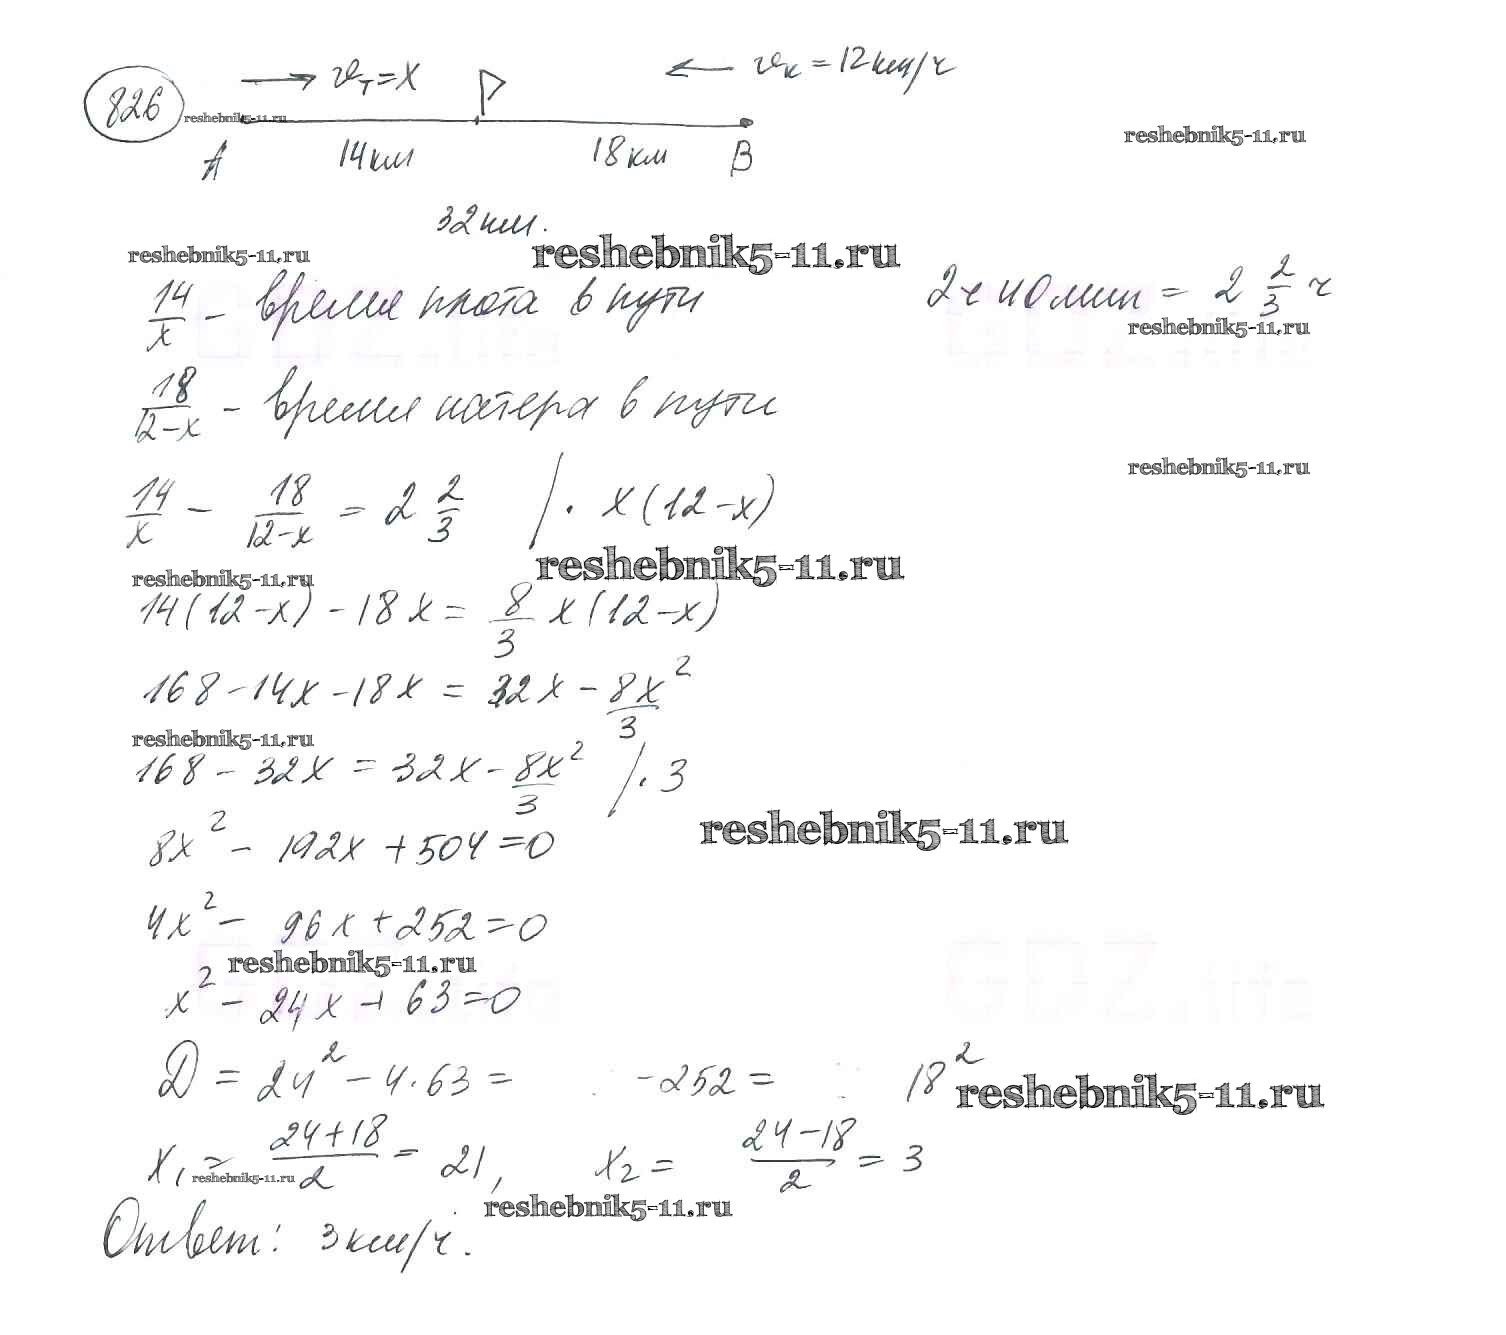 826 → υт = x ← υк = 12 км/ч
reshebnik5-11.ru
reshebnik5-11.ru
A 14 км 18 км B
32 км.
reshebnik5-11.ru reshebnik5-11.ru
14/x - время плота в пути 2 ч 40 мин = 2 2/3 ч
reshebnik5-11.ru
18/(12-x) - время катера в пути
reshebnik5-11.ru
14/x - 18/(12-x) = 2 2/3 / · x(12-x)
reshebnik5-11.ru
reshebnik5-11.ru
14(12-x) - 18x = 8/3 x(12-x)
168 - 14x - 18x = 32x - 8x²/3
reshebnik5-11.ru
168 - 32x = 32x - 8x²/3 / · 3
reshebnik5-11.ru
8x² - 192x + 504 = 0
4x² - 96x + 252 = 0
reshebnik5-11.ru
x² - 24x + 63 = 0
D = 24² - 4·63 = -252 = 18²
reshebnik5-11.ru
x₁ = (24+18)/2 = 21, x₂ = (24-18)/2 = 3
reshebnik5-11.ru
reshebnik5-11.ru
Ответ: 3 км/ч.